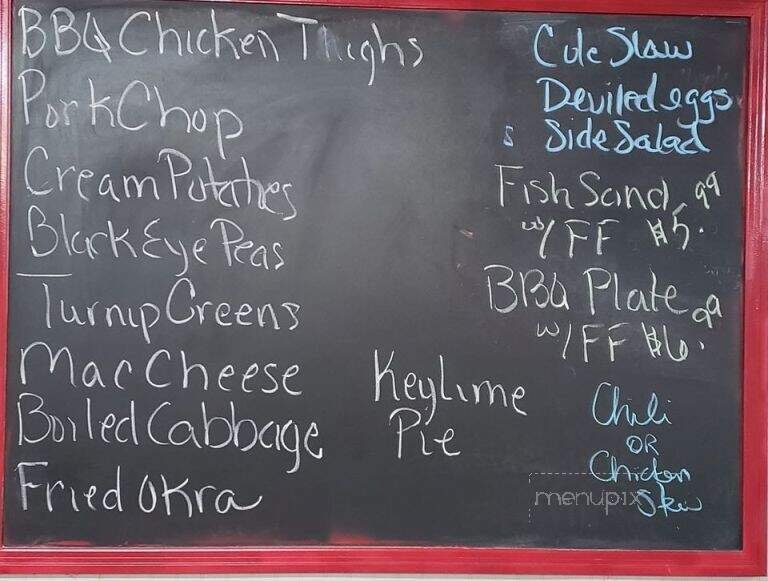 BBQ Chicken Thighs
Pork Chop
Cream Potatoes
Black Eye Peas
Turnip Greens
Mac Cheese
Boiled Cabbage
Fried Okra
Keylime
Pie
Cole Slaw
Deviled eggs
s Side Salad
Fish Sand
w/ FF $5.99
BBQ Plate
w/ FF $6.99
Chili
OR
Chicken
Stew
menupix